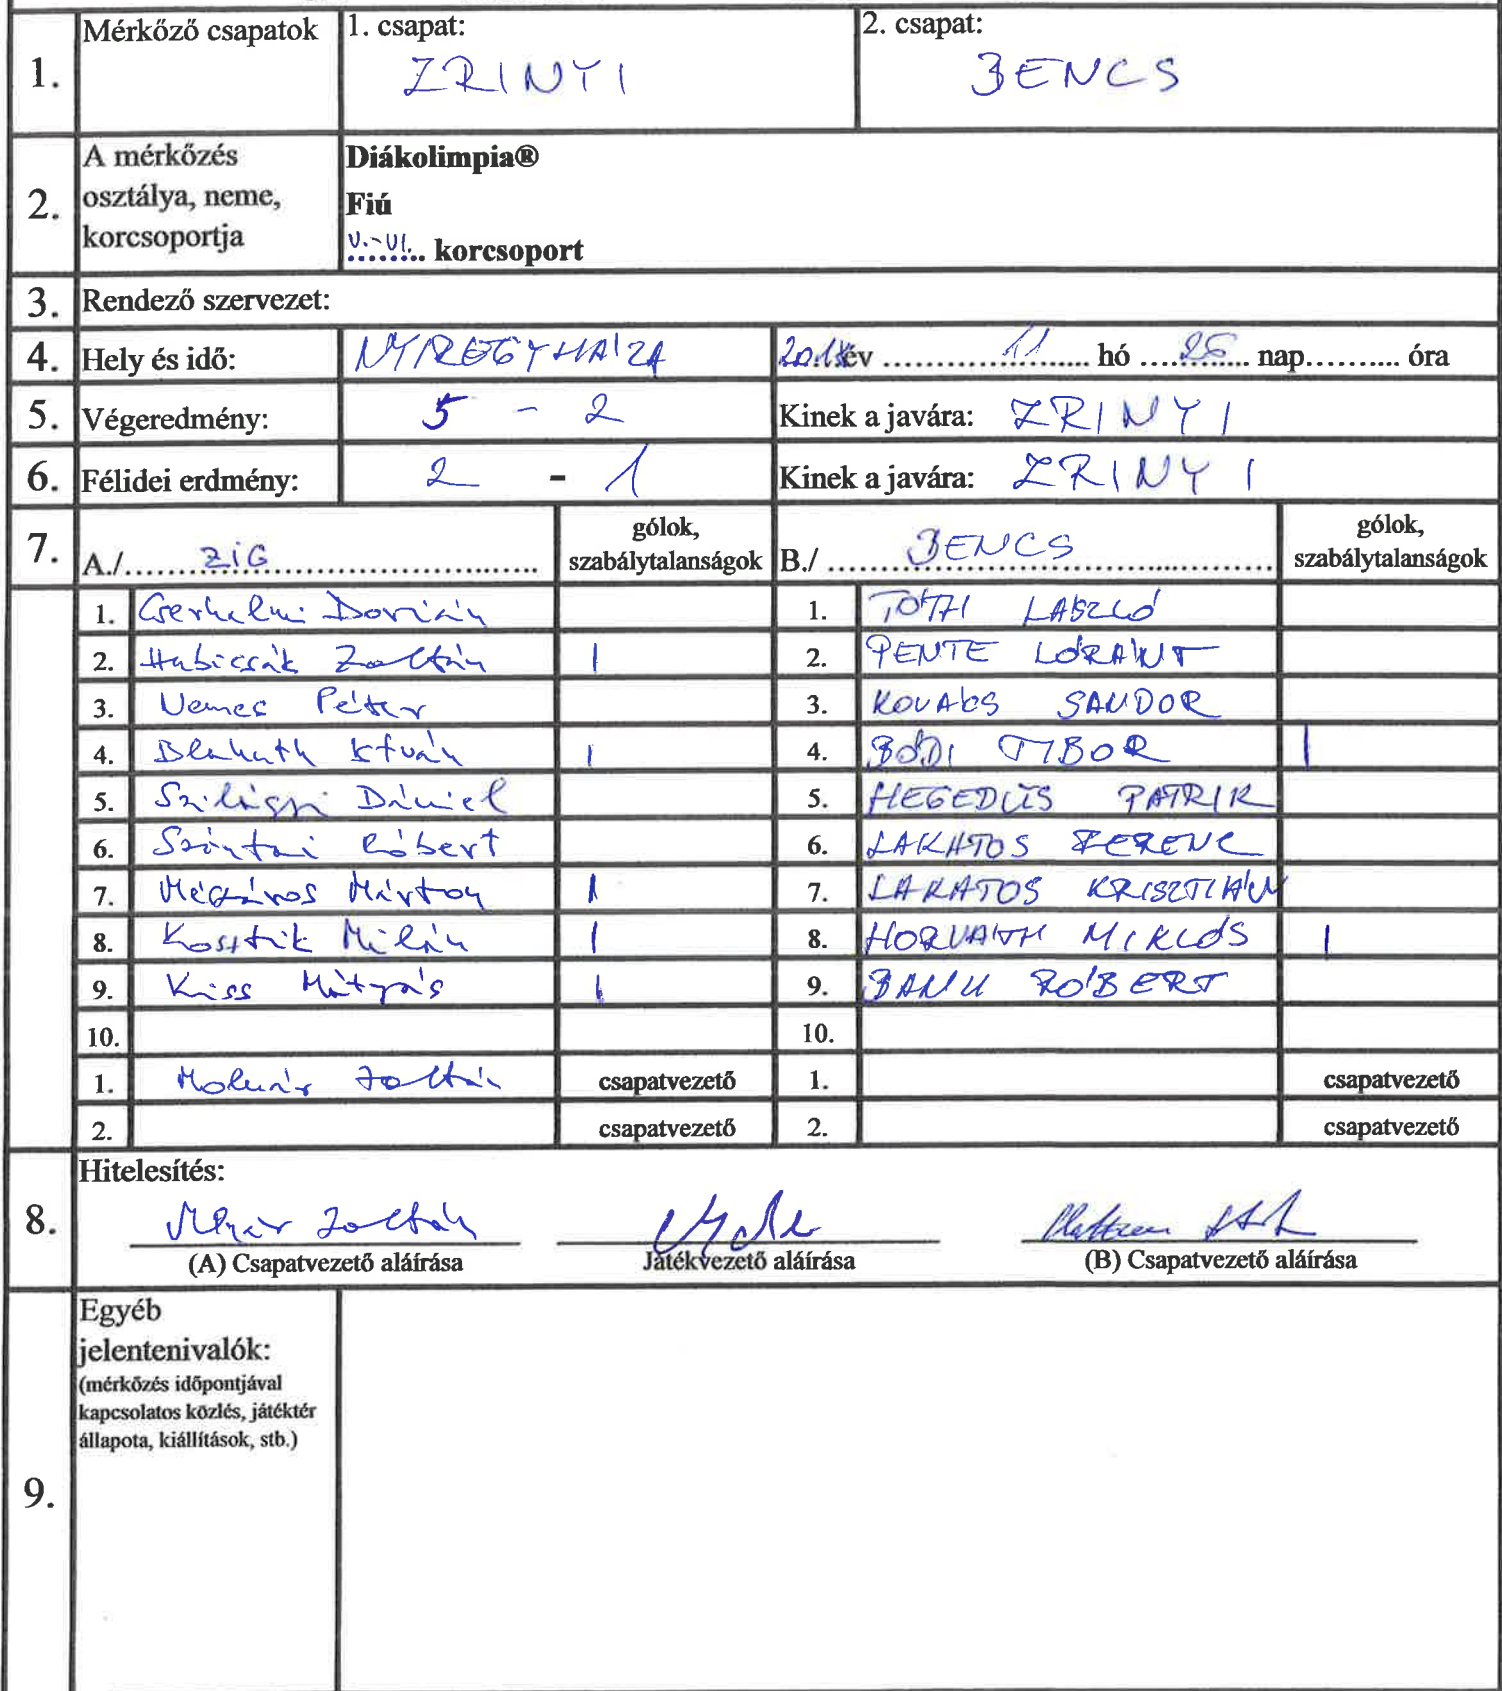 1. Mérkőző csapatok 1. csapat: ZRINYI 2. csapat: BENCS
2. A mérkőzés osztálya, neme, korcsoportja
Diákolimpia®
Fiú
V.-VI. korcsoport
3. Rendező szervezet:
4. Hely és idő: NYÍREGYHÁZA 2018 év 11 hó 26 nap.......... óra
5. Végeredmény: 5 - 2 Kinek a javára: ZRINYI
6. Félidei erdmény: 2 - 1 Kinek a javára: ZRINYI
7. A./ ZIG gólok, szabálytalanságok B./ BENCS gólok, szabálytalanságok
1. Cserhelmi Dorián 1. TÓTH LÁSZLÓ
2. Habicsák Zoltán 1 2. PENTE LÓRÁNT
3. Nemes Péter 3. KOVÁCS SANDOR
4. István 1 4. BÓDI TIBOR 1
5. Szilágyi Dániel 5. HEGEDŰS PATRIK
6. Szántai Róbert 6. LAKATOS FERENC
7. Mészáros Márton 1 7. LAKATOS KRISZTIÁN
8. Kosztik Milán 1 8. HORVÁTH MIKLÓS 1
9. Kiss Mátyás 1 9. BANU RÓBERT
10. 10.
1. Molnár Zoltán csapatvezető 1. csapatvezető
2. csapatvezető 2. csapatvezető
8. Hitelesítés:
Molnár Zoltán
(A) Csapatvezető aláírása Játékvezető aláírása (B) Csapatvezető aláírása
9. Egyéb
jelentenivalók:
(mérkőzés időpontjával
kapcsolatos közlés, játéktér
állapota, kiállítások, stb.)